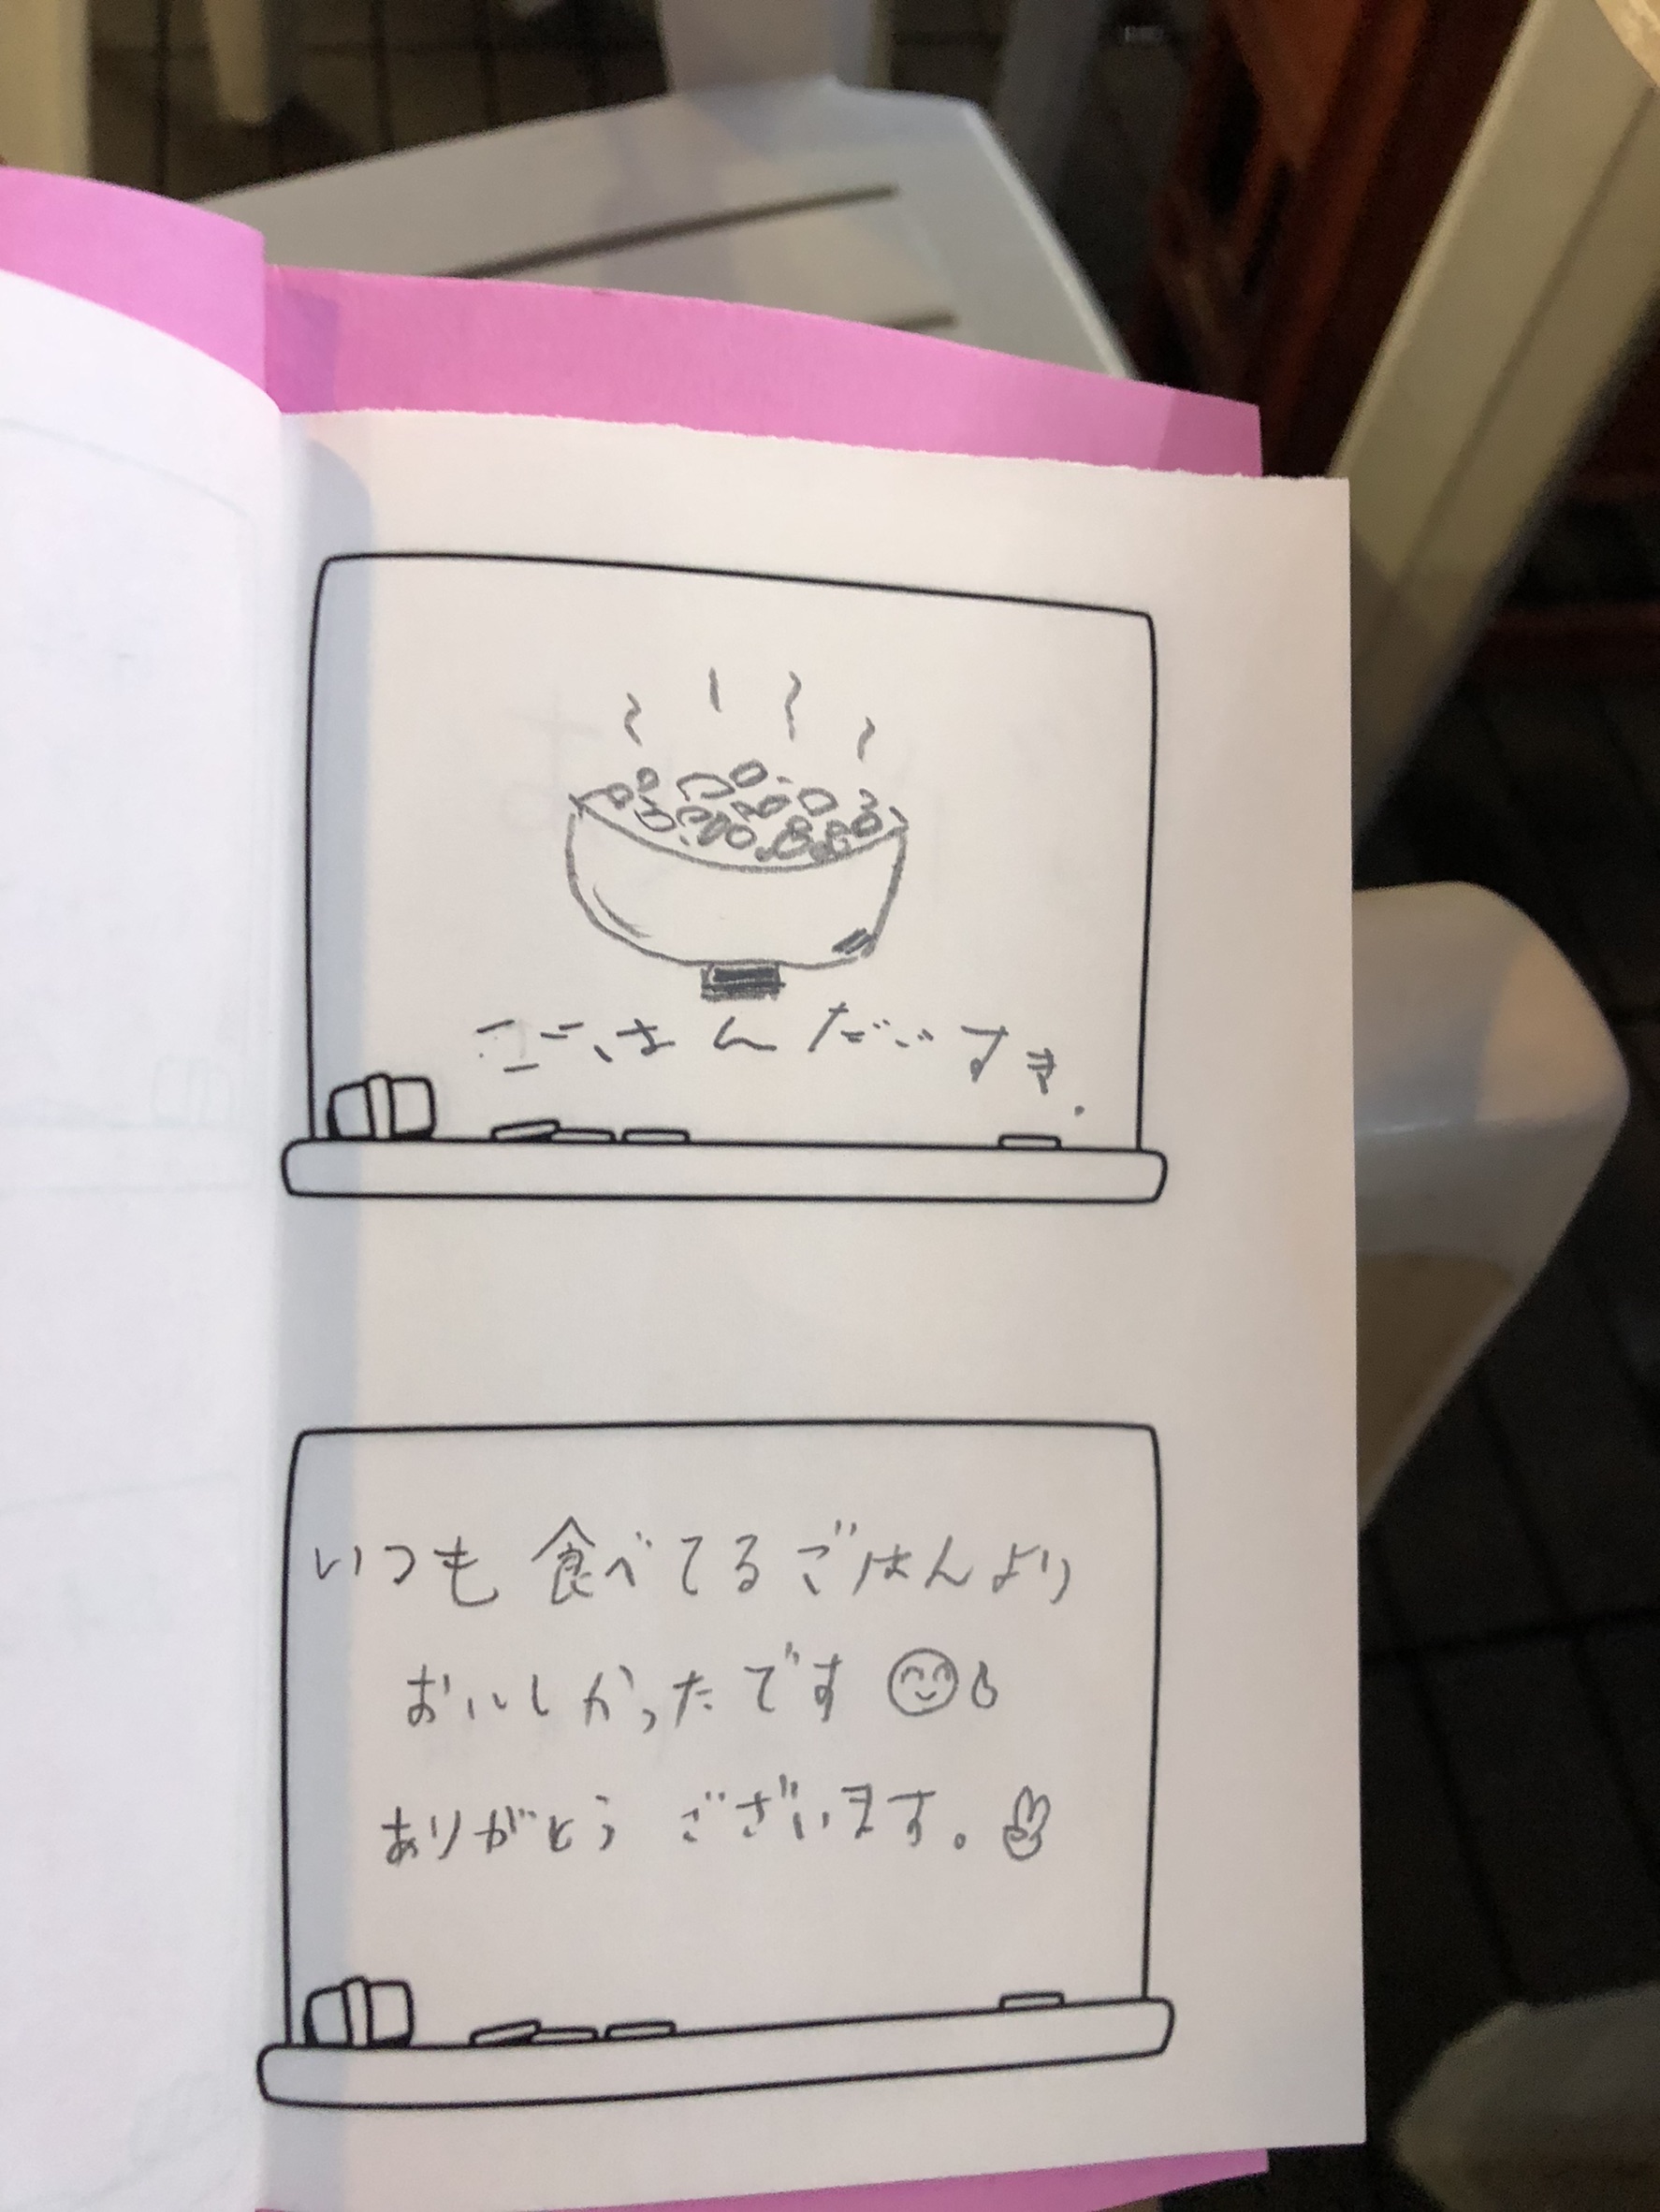 ごはんだいすき.
いつも食べてるごはんより
おいしかったです
ありがとうございます。